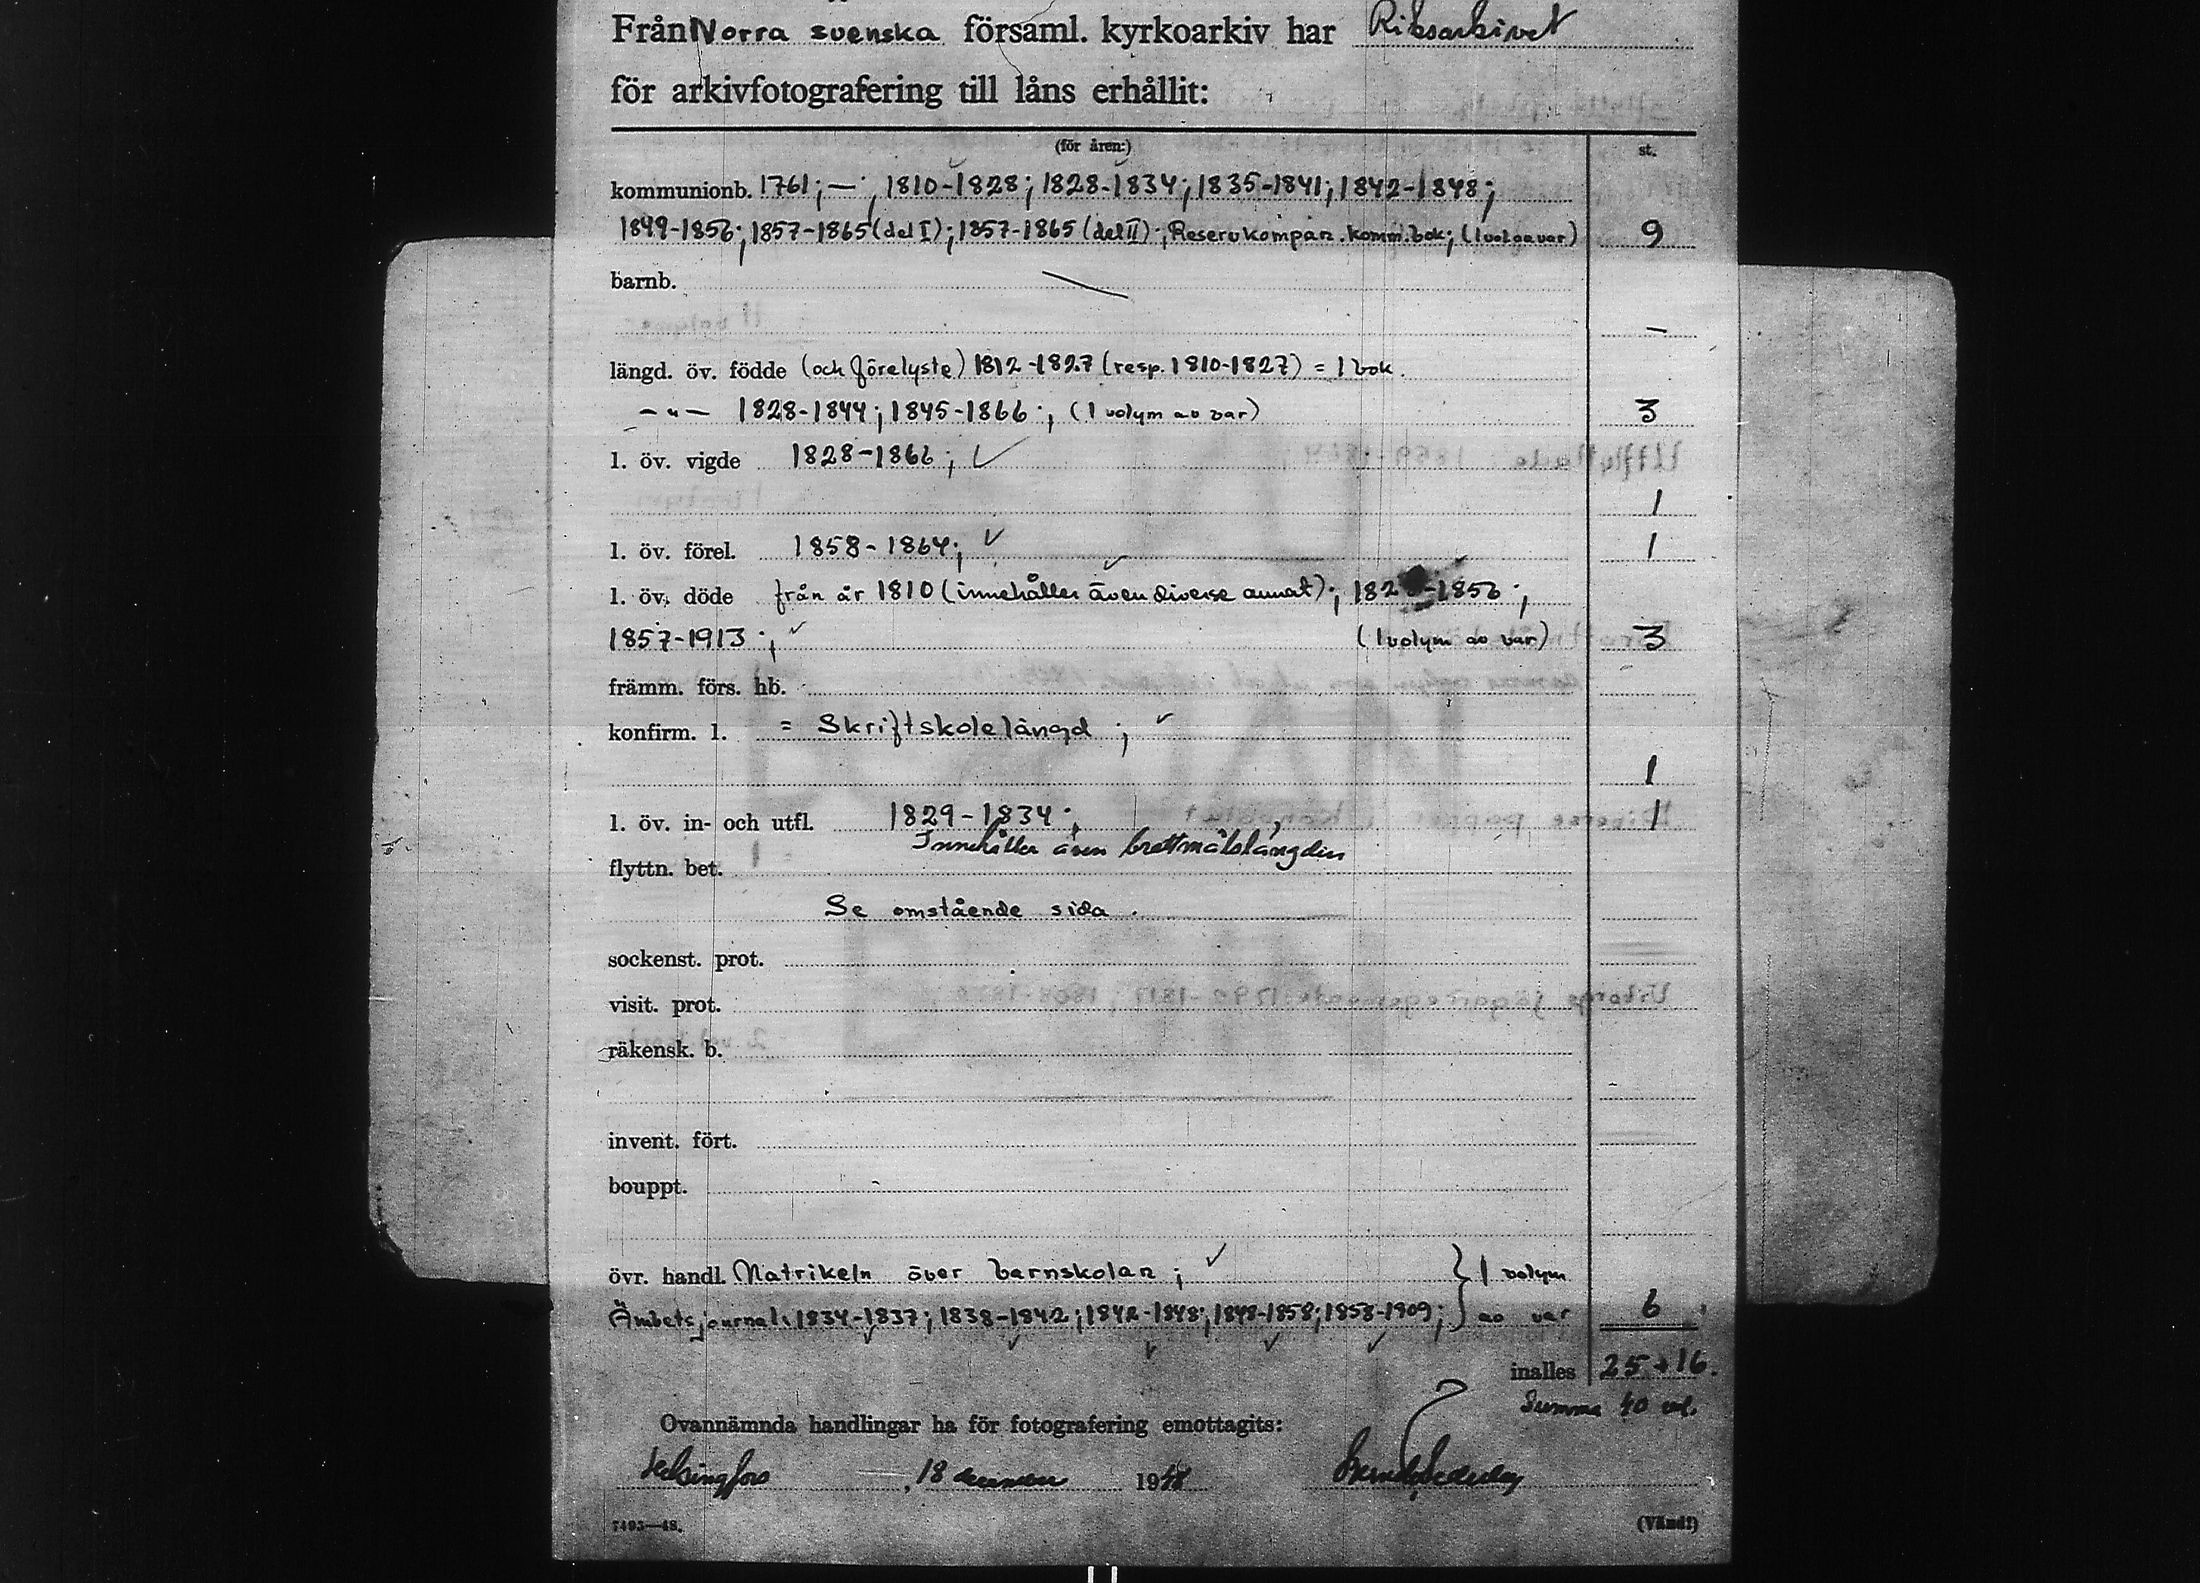 Från Norra svenska församl. kyrkoarkiv har Riksarkivet
för arkivfotografering till låns erhållit:
(för åren:) st.
kommunionb. 1761; — ; 1810-1828; 1828-1834; 1835-1841; 1842-1848;
1849-1856; 1857-1865 (del I); 1857-1865 (del II); Reservkompan. komm.bok; (1 vol av var) 9
barnb. —
–
längd. öv. födde (och förelyste) 1812-1827 (resp. 1810-1827) = 1 bok.
— " — 1828-1844; 1845-1866; (1 volym av var) 3
l. öv. vigde 1828-1866; ✓
1
l. öv. förel. 1858-1864; ✓ 1
l. öv. döde från år 1810 (innehåller även diverse annat); 182 -1856;
1857-1913; ✓ (1 volym av var) 3
främm. förs. hb.
konfirm. l. = Skriftskolelängd; ✓
1
l. öv. in- och utfl. 1829-1834; 1
Innehåller även brottmålslängden
flyttn. bet.
Se omstående sida.
sockenst. prot.
visit. prot.
räkensk. b.
invent. fört.
bouppt.
övr. handl. Matrikeln över barnskolan; ✓ } 1 volym
Ämbetsjournal: 1834-1837; 1838-1842; 1842-1848; 1848-1858; 1858-1909; av var 6
inalles 25 + 16.
Summa 40 vol.
Ovannämnda handlingar ha för fotografering emottagits:
Helsingfors, 18 december 1948
7495—48. (Vänd!)